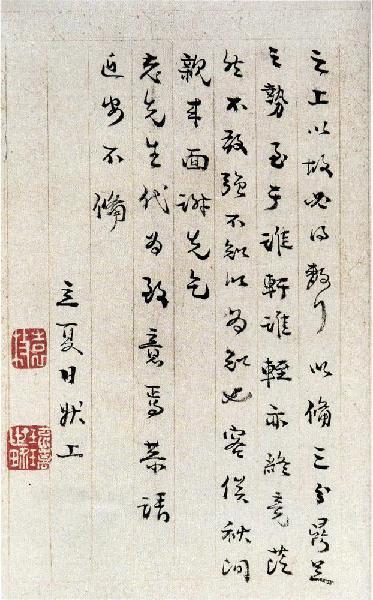 之上以故必得數行以備三分鼎足
之勢至于誰軒誰輊亦終竟茫
然不敢強不知以為知也容俟秋間
親來面謝先乞
老先生代為致意焉恭請
近安不備
立夏日狀上